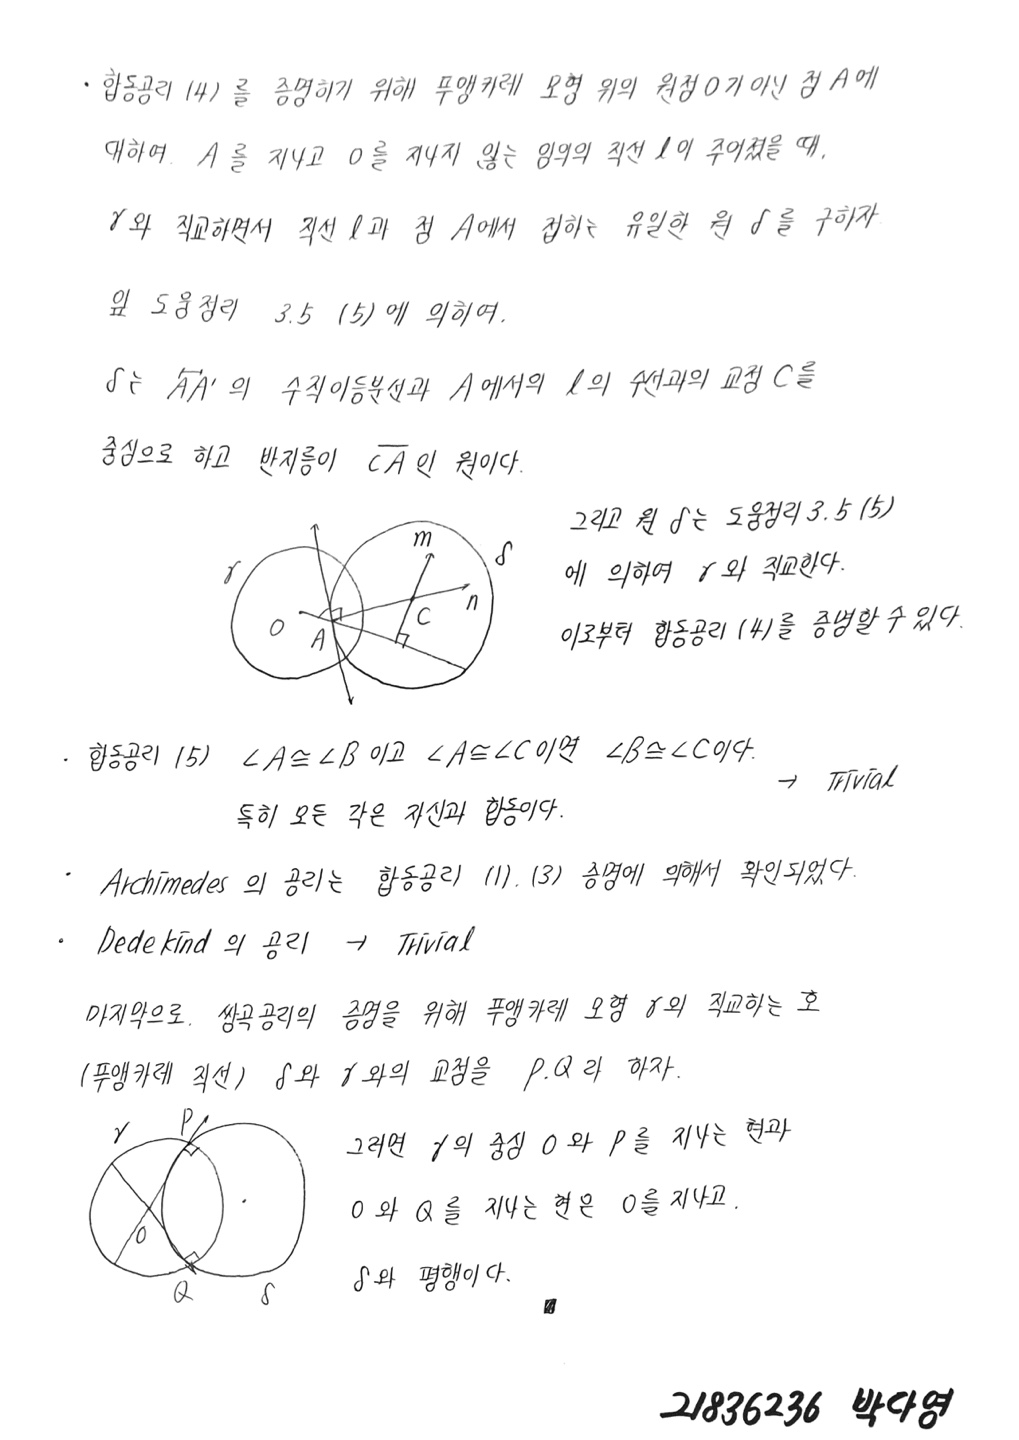 · 합동공리 (4) 를 증명하기 위해 푸앵카레 모형 위의 원점 O가 아닌 점 A에
대하여. A를 지나고 O를 지나지 않는 임의의 직선 l이 주어졌을 때,
γ와 직교하면서 직선 l과 점 A에서 접하는 유일한 원 δ를 구하자
앞 도움정리 3.5 (5)에 의하여.
δ는 AA'의 수직이등분선과 A에서의 l의 수선과의 교점 C를
중심으로 하고 반지름이 C̅A̅인 원이다.
그리고 원 δ는 도움정리 3.5 (5)
에 의하여 γ와 직교한다.
이로부터 합동공리 (4)를 증명할 수 있다.
γ
m
δ
n
O
A
C
· 합동공리 (5) ∠A≅∠B 이고 ∠A≅∠C이면 ∠B≅∠C이다.
→ Trivial
특히 모든 각은 자신과 합동이다.
· Archimedes 의 공리는 합동공리 (1), (3) 증명에 의해서 확인되었다.
· Dedekind 의 공리 → Trivial
마지막으로, 쌍곡공리의 증명을 위해 푸앵카레 모형 γ의 직교하는 호
(푸앵카레 직선) δ와 γ와의 교점을 P.Q라 하자.
γ
P
O
Q
δ
그러면 γ의 중심 O와 P를 지나는 현과
O와 Q를 지나는 현은 O를 지나고.
δ와 평행이다.
21836236 박다영